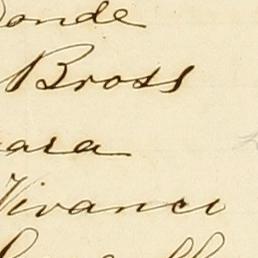 onde
Bross
ara
Vivanci